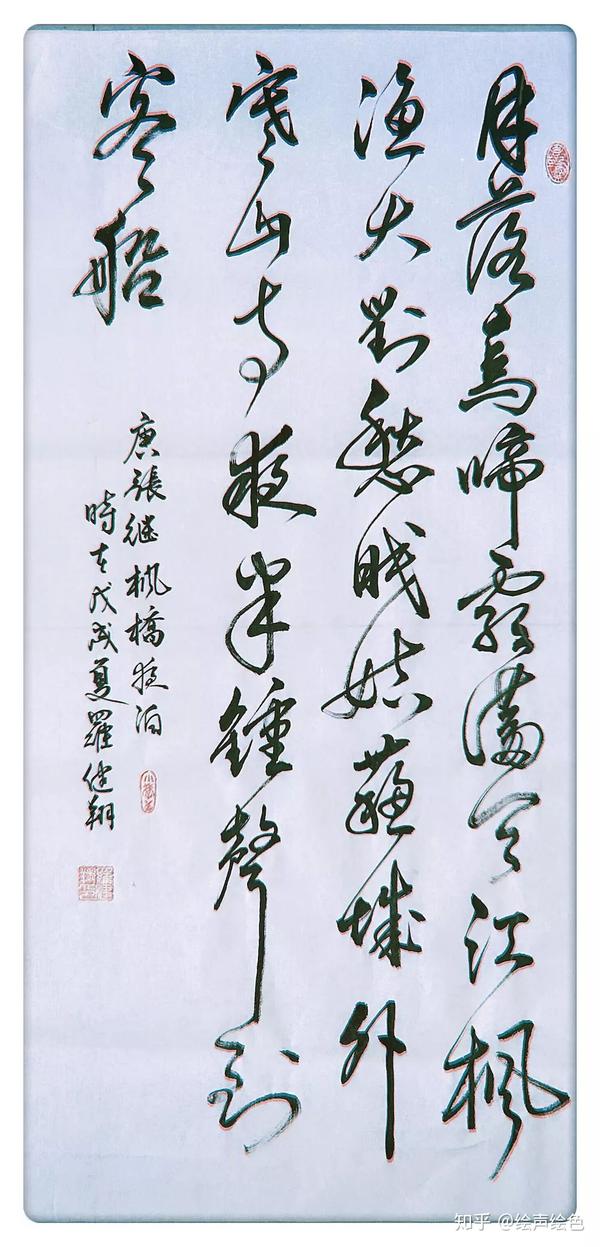 月落烏啼霜滿天江楓
漁火對愁眠姑蘇城外
寒山寺夜半鍾聲到
客船
唐張继楓橋夜泊
時在戊戌夏羅健翔
知乎 @绘声绘色